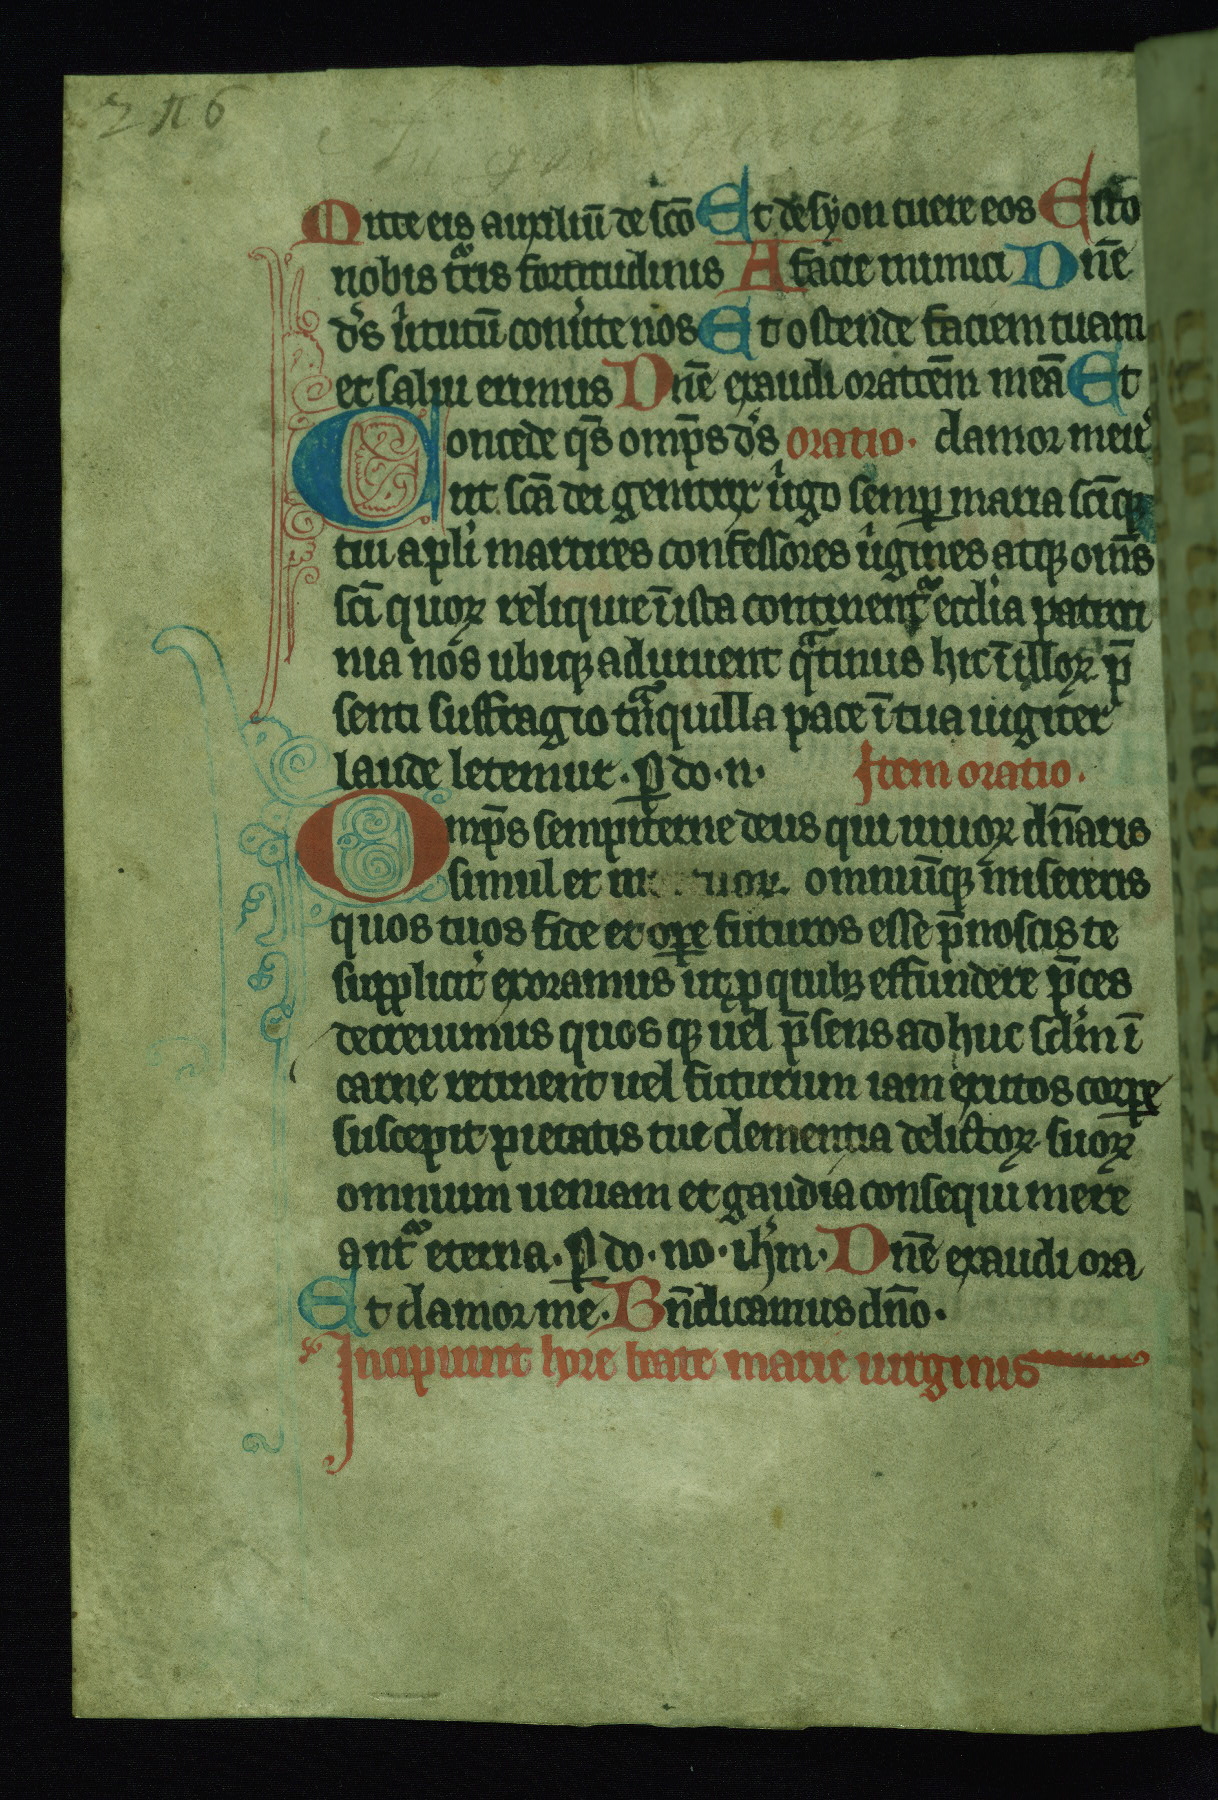 Mitte eis auxiliū de scō Et de syon tuere eos Esto
nobis tᵃris fortitudinis A facie inimici Dn̄e
d's u'tutū conu'te nos Et ostende faciem tuam
et salui erimus Dn̄e exaudi oratōēm meā Et
oncede qs̄ omp̄s d's oratio. clamor meu'
Cut scā dei genitrix u'go semꝑ maria sciq̄ꝫ
tui apli' martires confessores u'gines atqꝫ omīs
sci quoꝝ reliquie ī ista continent᷑ eccl'ia patroci
nia nos ubiqꝫ adiuuent qᵃtinus hic ī illoꝝ p̄
senti suffragio tᵃnquilla pace ī tua iugiter
laude letemur. ꝑ do. n. Item oratio.
Omp̄s sempiterne deus qui uiuoꝝ dn̄aris
simul et m uoꝝ. omniūqꝫ misereris
quos tuos fide et oꝑe futuros esse p̄noscis te
supplicit' exoramus ut p̱ quibꝫ effundere p̄ces
decreuimus quosqꝫ uel p̄sens adhuc sclm̄ ī
carne retinent uel futurum iam exutos corꝑe
suscepit pietatis tue clementia delictoꝝ suoꝝ
omnium ueniam et gaudia consequi mere
ant᷑ eterna. ꝑ do. no. ih'm. Dn̄e exaudi ora
Et clamor me. Bn̄dicamus dn̄o.
Incipiunt hore beate marie uirginis